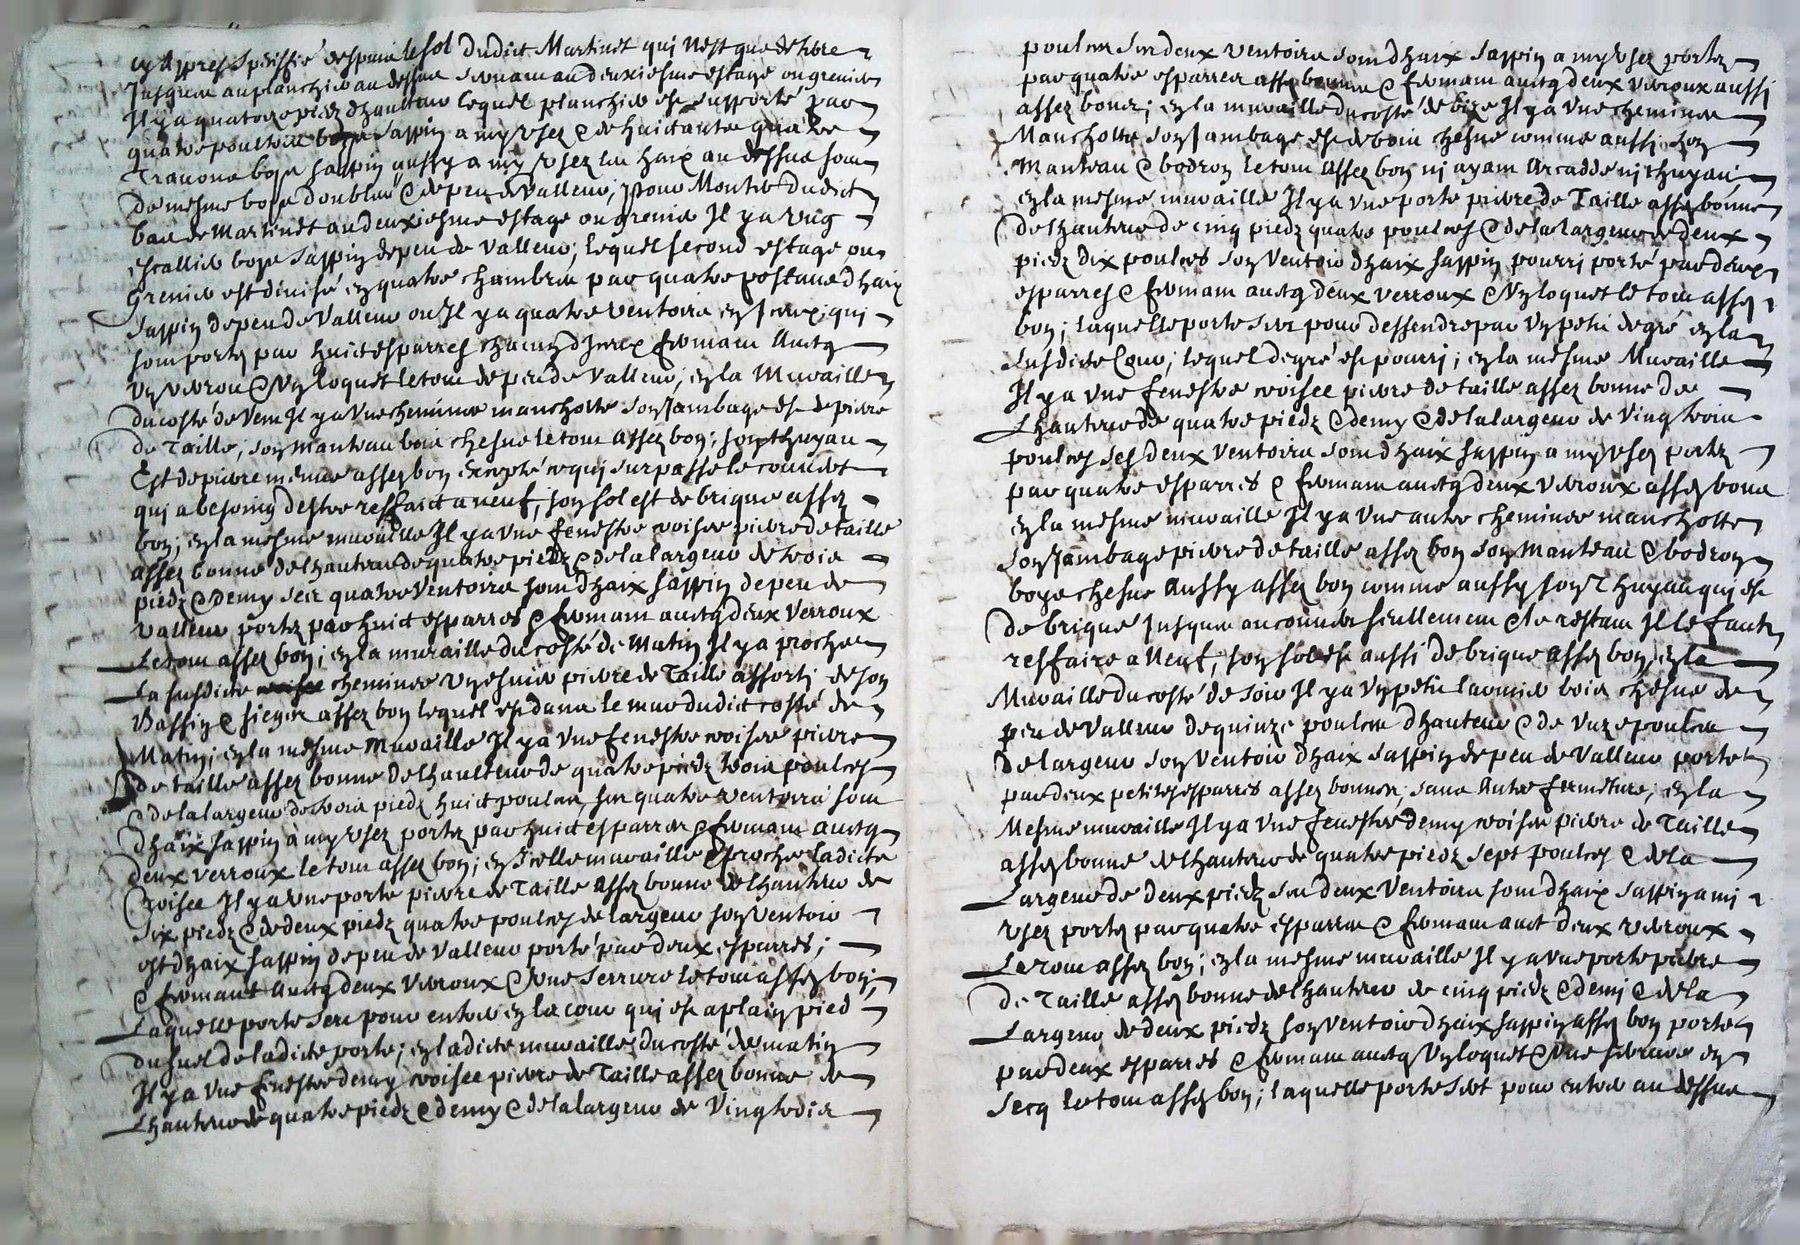 cy Appres speissié despuis le sol dudict Martinet qui n'est que de terre
Jusques au planchier au dessus servant au deuxiesme estage ou grenier
Il y a quatorze piedz d'haulteur lequel planchier est supporté par
quatre poultres boys sappin a my vsez & de huictante quatre
Travons boys sappin aussy a my vsez les haix au dessus sont
de mesme boys doubles & de peu de valleur; Pour Monter dudict
bas de Martinet au deuxiesme estage ou grenier Il y a vng
escallier boys sappin de peu de valleur, lequel second estage ou
Grenier est divisé en quatre chambres par quatre postanes d'haix
sappin de peu de valleur ou Il y a quatre ventoirs en iceux qui
sont portez par huict esparres chacung d'iceux fermant aueq
vn verrou & vn loquet le tout de peu de valleur; en la Muraille
du costé de Vent Il y a vne cheminee manchotte son Jambage est de pierre
de Taille, son manteau bois chesne le tout assez bon; son thuyau
Est de pierre menue assez bon excepté ce qui surpasse le couuert
qui a besoing d'estre reffaict a neuf, son sol est de brique assez
bon; en la mesme muraille Il y a vne fenestre croisee pierre de taille
assez bonne de l'hauteur de quatre piedz & de la largeur de trois
piedz & demy ses quatre ventoirs sont d'haix sappin de peu de
valleur portez par huict esparres & fermant aueq deux verroux
Le tout assez bon; en la muraille du costé de Matin Il y a proche
La susdicte cheminee vn esuier pierre de Taille assorti de son
Bassin & sieger assez bon lequel est dans le mur dudict costé de
Matin; en la mesme muraille Il y a vne fenestre croisee pierre
de taille assez bonne de l'haulteur de quatre piedz trois poulces
& de la largeur de trois piedz huict poulces ses quatre ventoirs sont
d'haix sappin a my vsez portez par huict esparres & fermant aueq
deux verroux le tout assez bon; en Icelle muraille & proche ladicte
Croisee Il y a vne porte pierre de Taille assez bonne de l'hauteur de
six piedz & de deux piedz quatre poulces de largeur son ventoir
est d'haix sappin de peu de valleur porté par deux esparres;
& fermant aueq deux verroux & vne serrure le tout assez bon;
Laquelle porte sert pour entrer en la cour qui est a plain pied
du suel de ladicte porte; en ladicte muraille du costé de matin
Il y a vne fenestre demy croisee pierre de Taille assez bonne de
L'hauteur de quatre piedz & demy & de la largeur de vingt trois
poulces ses deux ventoirs sont d'haix sappin a my vsez portez
par quatre esparres assez bonnes & fermant aueq deux verroux aussi
assez bons; en la muraille du costé de bize Il y a vne cheminee
Manchotte son Jambage est de bois chesne comme aussi son
Manteau & bodron le tout assez bon ni ayant Arcadde ni thuyau
en la mesme muraille Il y a vne porte pierre de Taille assez bonne
de l'hauteur de cinq piedz quatre poulces & de la largeur de deux
piedz dix poulces son ventoir d'haix sappin pourri porté par deux
esparres & fermant aueq deux verroux & vn loquet le tout assez
bon; laquelle porte sert pour dessendre par vn petit degré en la
susdicte Cour, lequel degré est pourri; en la mesme Muraille
Il y a vne fenestre croisee pierre de taille assez bonne de
L'hauteur de quatre piedz & demy & de la largeur de vingt trois
poulces ses deux ventoirs sont d'haix sappin a my vsez portez
par quatre esparres & fermant aueq deux verroux assez bons
en la mesme muraille Il y a vne autre cheminee manchotte
son Jambage pierre de taille assez bon son Manteau & bodron
boys chesne Aussy assez bon comme aussy son Thuyau qui est
de brique Jusques au couuert seullement & le restant Il le faut
reffaire a Neuf, son sol est aussi de brique assez bon; en la
Muraille du costé de soir Il y a vn petit larmier bois chesne de
peu de Valleur de quinze poulces d'hauteur & de vnze poulces
de largeur son ventoir d'haix sappin de peu de valleur porté
par deux petites esparres assez bonnes, sans Autre fermeture; en la
Mesme muraille Il y a vne fenestre demy croisee pierre de Taille
assez bonne de l'hauteur de quatre piedz sept poulces & de la
Largeur de deux piedz ses deux ventoirs sont d'haix sappin a mi
vsez portez par quatre esparres & fermant auec deux verroux
Le tout assez bon; en la mesme muraille Il y a vne porte pierre
de Taille assez bonne de l'hauteur de cinq piedz & demi & de la
Largeur de deux piedz son ventoir d'haix sappin assez bon porté
par deux esparres & fermant aueq vn loquet & vne serrure en
secq le tout assez bon; laquelle porte sert pour entrer au dessus